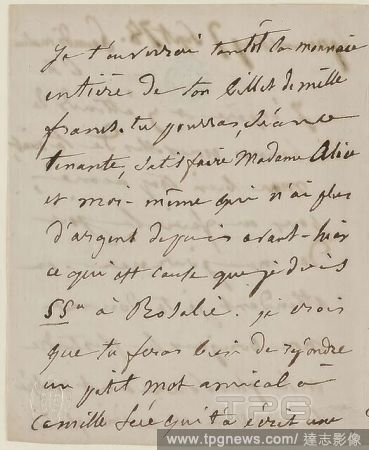 Je t'enverrai tantôt la monnaie
entière de ton billet de mille
francs. tu pourras, séance
tenante, satisfaire Madame Alice
et moi-même qui n'ai plus
d'argent depuis avant-hier
ce qui est cause que je dois
55 à Rosalie. je crois
que tu feras bien de répondre
un petit mot amical à
Camille qui t'a écrit une
TPG
www.tpgnews.com/達志影像